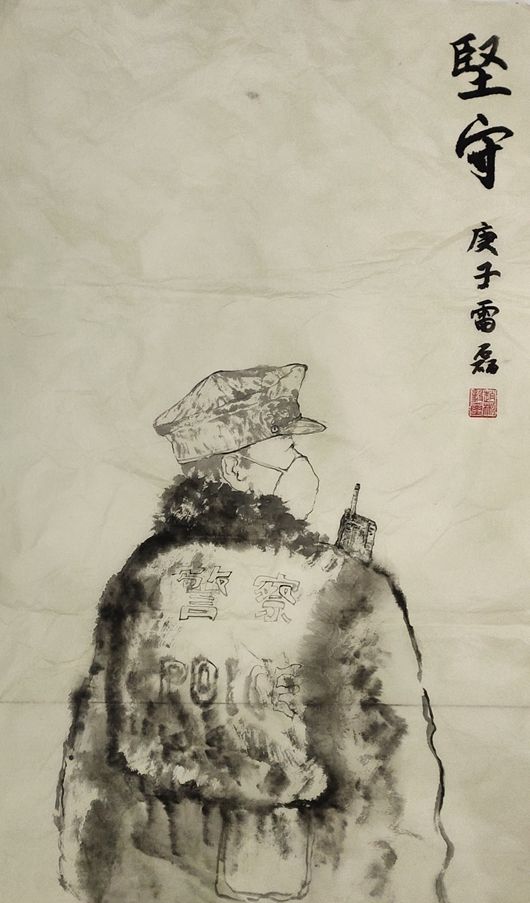 堅守
庚子雷磊
警察
POLICE